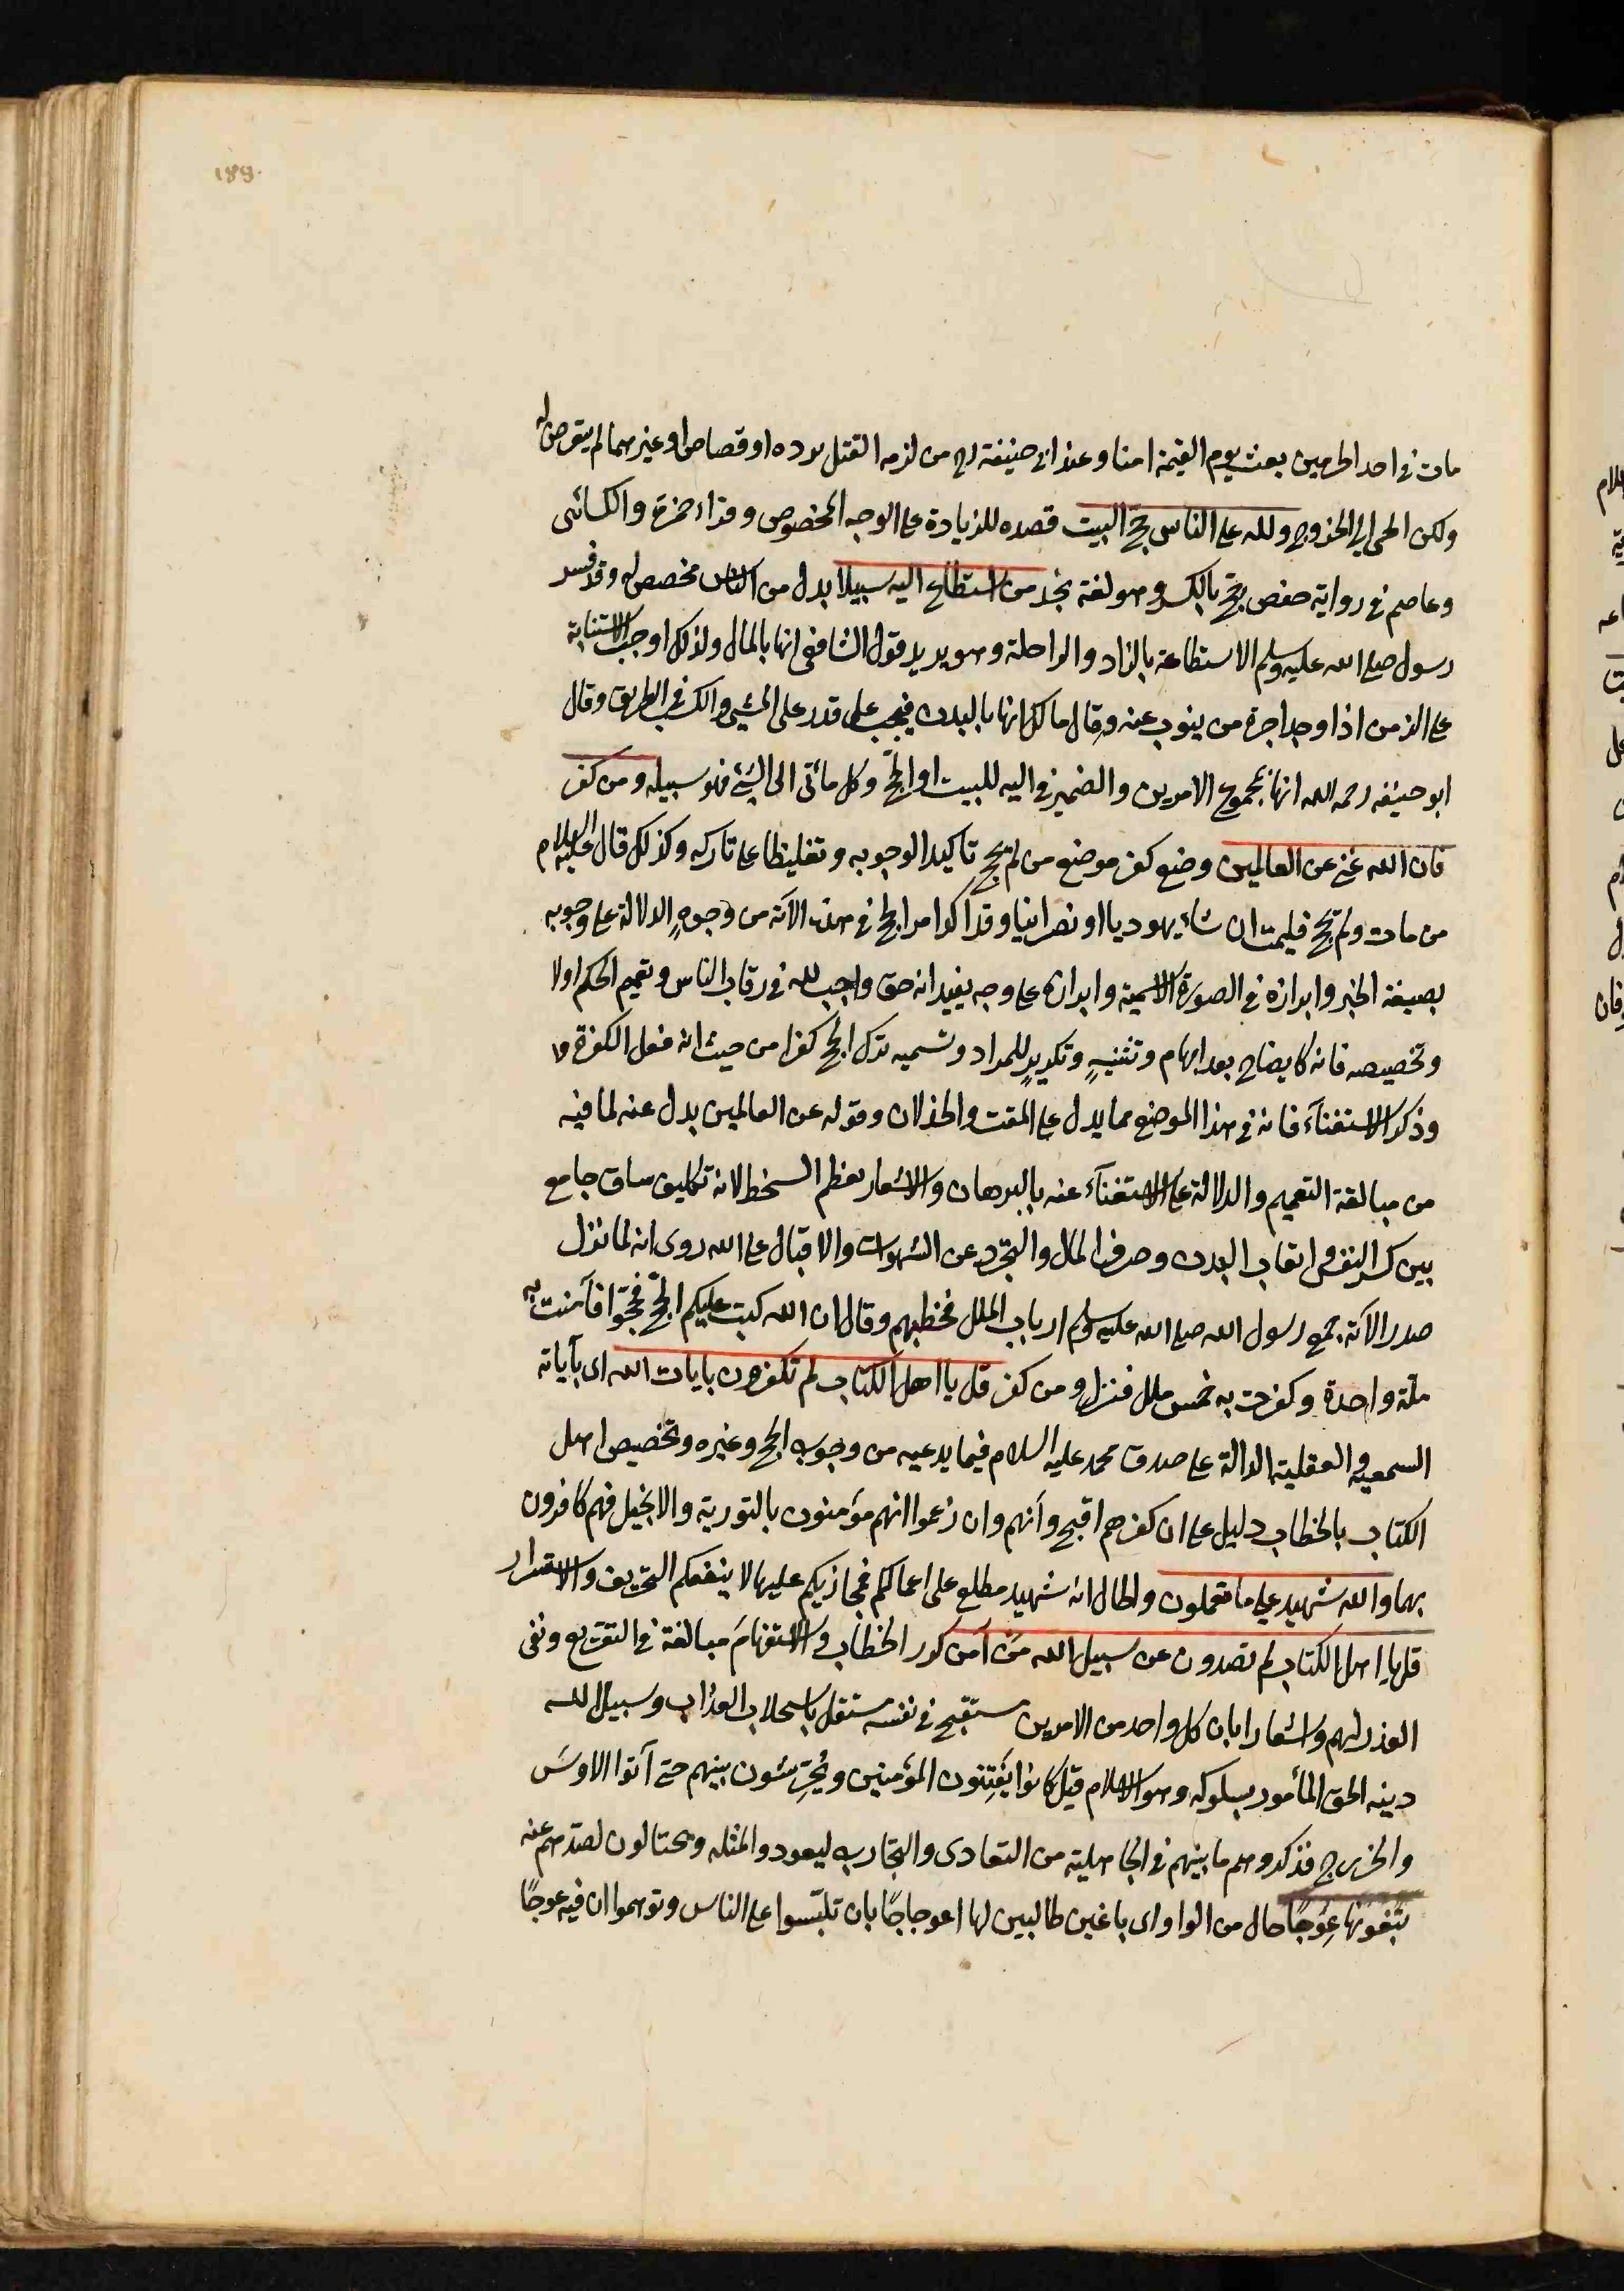 189.
مات في احد الحرمين بعث يوم القيمة امنا وعند ابي حنيفة رح من لزمه القتل برده او قصاص او غيرهما لم يتعرض له
ولكن الجئ الى الخروج ولله على الناس حج البيت قصده للزيارة على الوجه المخصوص وقراء حمزة والكسائى
وعاصم في رواية حفص حج بالكسر وهو لغة نجد من استطاع اليه سبيلا بدل من الناس مخصص له وقد فسر
رسول صلى الله عليه وسلم الاستطاعة بالزاد والراحلة وهو يريد قول الشافعى انها بالمال ولذلك اوجب الاستنابة
على الزمن اذا وجد اجرة من ينوب عنه وقال مالك انها بالبدن فيجب على قدر على المشي والكسب في الطريق وقال
ابو حنيفه رحمه الله انها بمجموع الامرين والضمير في اليه للبيت او الحج وكل مأتى الى الشئ فهو سبيله ومن كفر
فان الله غني عن العالمين وضع كفر موضع من لم يحج تاكيدا لوجوبه وتغليظا على تاركه وكذلك قال عليه السلام
من مات ولم يحج فليمت ان شاء يهوديا او نصرانيا وقد اكد امر الحج في هذه الآية من وجوهٍ الدلالة على وجوبه
بصيغة الخبر وابرازه في الصورة الاسمية وايراده على وجه يفيد انه حق واجب لله في رقاب الناس وتعميم الحكم اولا
وتخصيصه فانه كايضاح بعد ابهام وتثنيةٍ وتكريرٍ للمراد وتسميه ترك الحج كفرا من حيث انه فعل الكفرة
وذكر الاستغناء فانه في هذا الموضع مما يدل على المقت والخذلان وقوله عن العالمين بدل عنه لما فيه
من مبالغة التعميم والدلالة على الاستغناء عنه بالبرهان والاشعار بعظم السخط لانه تكليف ساق جامع
بين كسر النفس واتعاب البدن وصرف المال والتجرد عن الشهوات والاقبال على الله روى انه لما نزل
صدر الآية جمع رسول الله صلى الله عليه وسلم ارباب الملل فخطبهم وقال ان الله كتب عليكم الحج فحجّوا فآمنت به
ملة واحدة وكفرت به خمس ملل فنزل ومن كفر قل يا اهل الكتاب لم تكفرون بايات الله اى بآياته
السمعية والعقلية الدالة على صدق محمد عليه السلام فيما يدعيه من وجوب الحج وغيره وتخصيص اهل
الكتاب بالخطاب دليل على ان كفرهم اقبح وأنهم وان زعموا انهم مؤمنون بالتورية والانجيل فهم كافرون
بهما والله شهيد على ما تعملون والحال انه شهيد مطلع على اعمالكم فمجازيكم عليها لا ينفعكم التحريف والاستسرار
قل يا اهل الكتاب لم تصدون عن سبيل الله من آمن كرر الخطاب والاستفهام مبالغة في التقريع ونفى
العذر لهم واشعارا بان كل واحد من الامرين مستقبح في نفسه مستقل باستجلاب العذاب وسبيل الله
دينه الحق المأمور بسلوكه وهو الاسلام قيل كانوا يَفْتِنُون المؤمنين ويُحرّشون بينهم حتى آتوا الاوس
والخزرج فذكروهم ما بينهم في الجاهلية من التعادى والتحارب ليعودوا لمثله ويحتالون لصدّهم عنه
تبغونها عِوَجًا حال من الواو اى باغين طالبين لها اعوجاجًا بان تلبّسوا على الناس وتوهموا ان فيه عوجًا